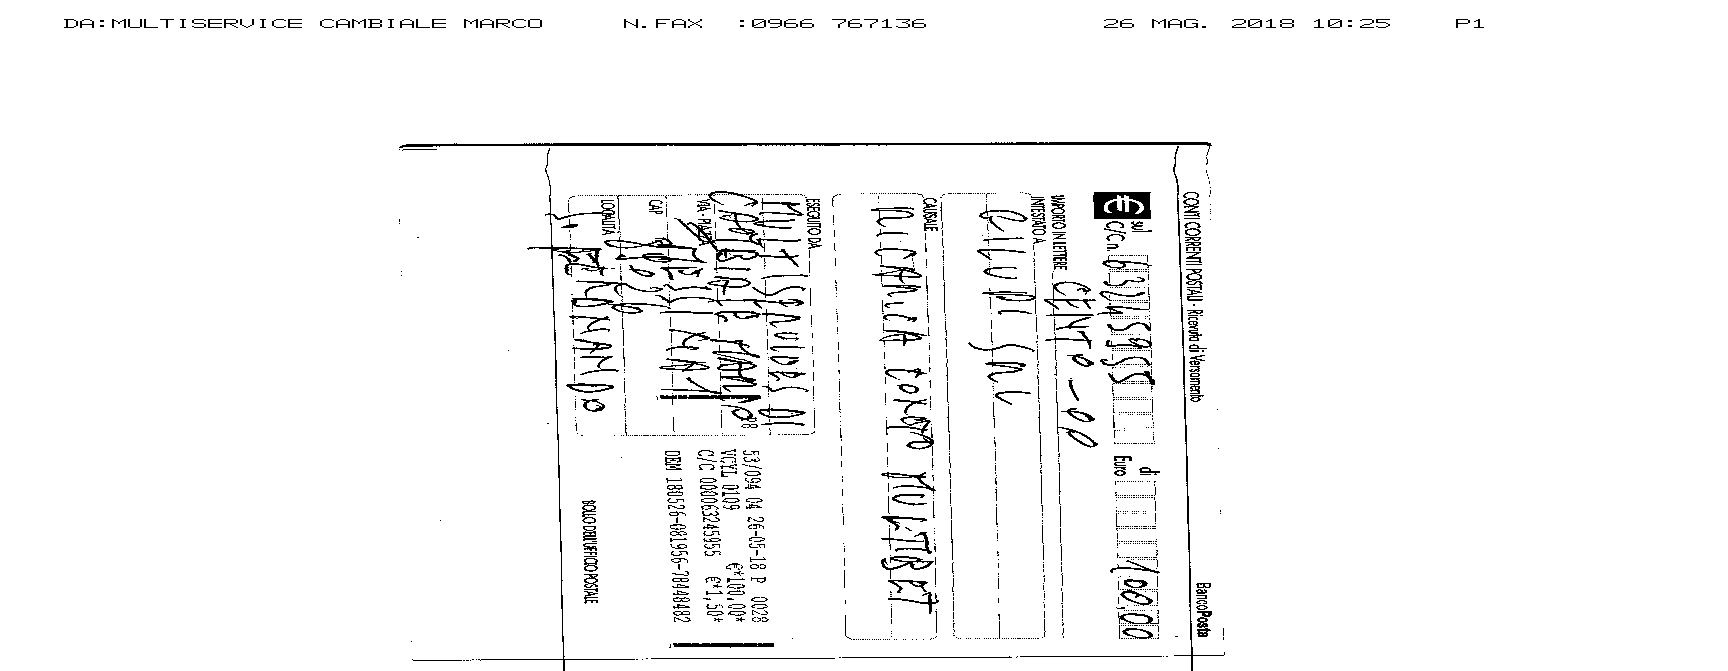 DA:MULTISERVICE CAMBIALE MARCO N.FAX :0966 767136 26 MAG. 2018 10:25 P1
CONTI CORRENTI POSTALI - Ricevuta di Versamento BancoPosta
€ sul C/C n. 63245955 di Euro 100,00
IMPORTO IN LETTERE CENTO-00
INTESTATO A
CAUSALE
RICARICA CONTO MULTIBET
ESEGUITO DA
MULTISERVICES DI
CAMBIALE MARCO
VIA - PIAZZA
CAP
LOCALITÀ
53/094 04 26-05-18 P 0028
VCYL 0109 €*100,00*
C/C 000063245955 €*1,50*
DEM 180526-081956-78448482
BOLLO DELL'UFFICIO POSTALE